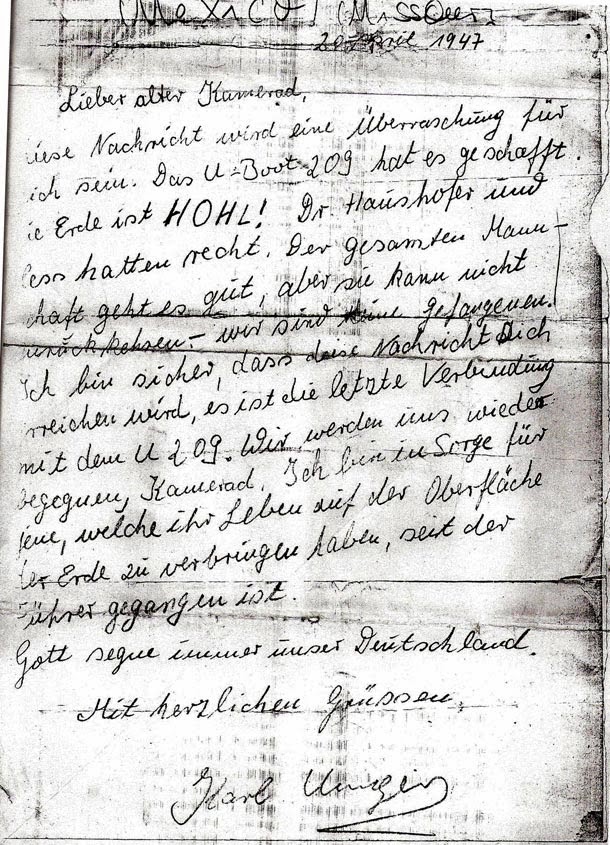 (Mexico) (Missouri)
20 April 1947
Lieber alter Kamerad,
iese Nachricht wird eine Überraschung für
ich sein. Das U-Boot 209 hat es geschafft.
ie Erde ist HOHL! Dr. Haushofer und
less hatten recht. Der gesamten Mann-
chaft geht es gut, aber sie kann nicht
zurückkehsen - wir sind keine gefangenen.
Ich bin sicher, dass diese Nachricht Dich
rreichen wird, es ist die letzte Verbindung
mit dem U 209. Wir werden uns wieder
begegnen, Kamerad. Ich bin in Sorge für
jene, welche ihr Leben auf der Oberfläche
der Erde zu verbringen haben, seit der
Führer gegangen ist.
Gott segne immer unser Deutschland.
Mit herzlichen Grüssen,
Karl Unger